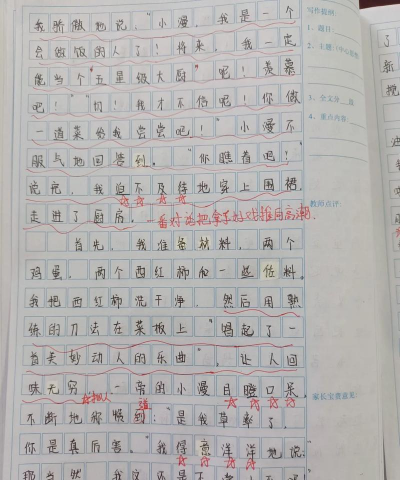 我骄傲地说：“小漫，我是一个
会做饭的人了！将来，我一定
能当个“五星级大厨”呢！羡慕
吧！”“切！我才不信呢！你做
一道菜给我尝尝吧！”小漫不
服气地回答到。“你瞧着吧！”
说完，我迫不及待地穿上围裙，
走进了厨房。
一番对话把拿手好戏推向高潮。
首先，我准备材料，两个
鸡蛋，两个西红柿和一些佐料。
我把西红柿洗干净，然后用熟
练的刀法在菜板上“唱起了一
首美妙动人的乐曲”，让人回
味无穷，一旁的小漫目瞪口呆，
不断地称赞到：“是我草率了，
你是真厉害。”我得意洋洋地说：
那当然，我
写作提纲：
1、题目：
2、主题(中心思想)
3、全文分 段
4、重点内容：
教师点评：
家长宝贵意见：
了
新